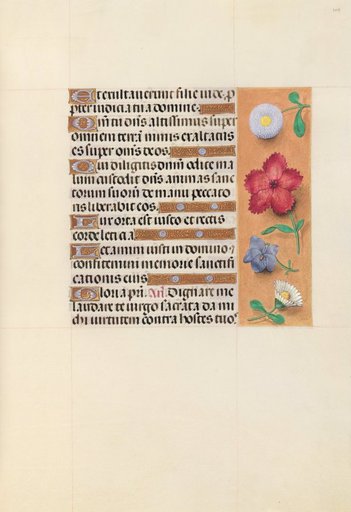 Et exultaverunt filie iude, p
pter iudicia tua domine.
Qm̄ tu dn̄s altissimus super
omnem terrā nimis exaltatus
es super om̄s deos.
Qui diligitis dn̄m odite ma
lum custodit dn̄s animas sanc
torum suorū de manu peccato
ris liberabit eos.
Lux orta est iusto et rectis
corde leticia.
Letamini iusti in domino
confitemini memorie sanctifi
cationis eius
Gloria pr̄i. Añ. Dignare me
laudare te virgo sacrata da mi
chi virtutem contra hostes tuos.